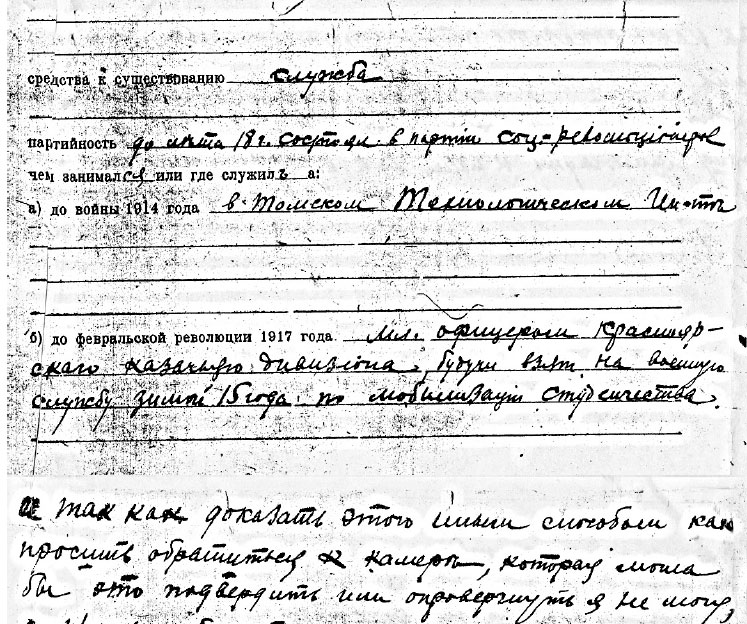 средства к существованию служба
партийность до лета 18 г. состоял в партии соц-революцiонеров
чем занимался или где служилъ а:
а) до войны 1914 года в Томском Технологическом Ин-те
б) до февральской революции 1917 года мл. офицером Краснояр-
скаго казачьяго дивизiона, будучи взят на военную
службу зимой 15 года по мобилизации студенчества.
и так как доказать этого иным способом как
просить обратиться к камере, которая могла
бы это подтвердить или опровергнуть я не могу,